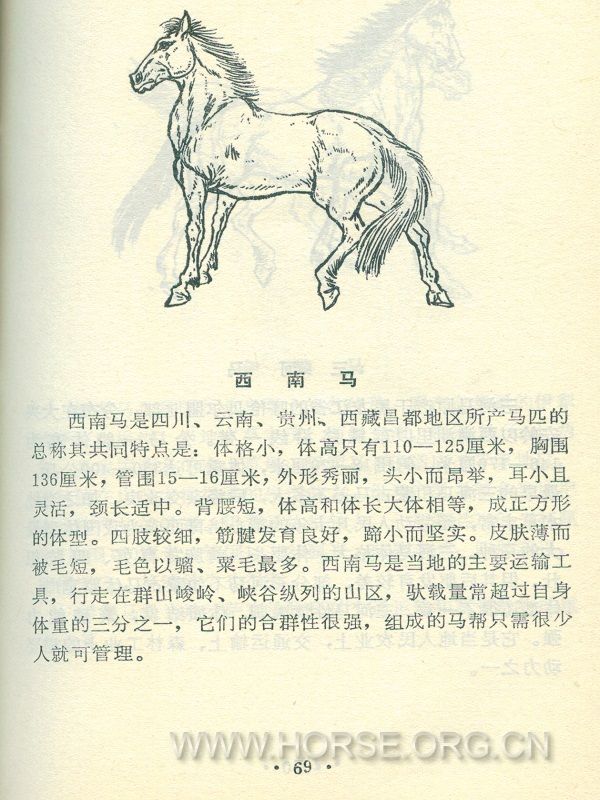 西南马
西南马是四川、云南、贵州、西藏昌都地区所产马匹的
总称其共同特点是：体格小，体高只有110—125厘米，胸围
136厘米，管围15—16厘米，外形秀丽，头小而昂举，耳小且
灵活，颈长适中。背腰短，体高和体长大体相等，成正方形
的体型。四肢较细，筋腱发育良好，蹄小而坚实。皮肤薄而
被毛短，毛色以骝、粟毛最多。西南马是当地的主要运输工
具，行走在群山峻岭、峡谷纵列的山区，驮载量常超过自身
体重的三分之一，它们的合群性很强，组成的马帮只需很少
人就可管理。
WWW.HORSE.ORG.CN
·69·